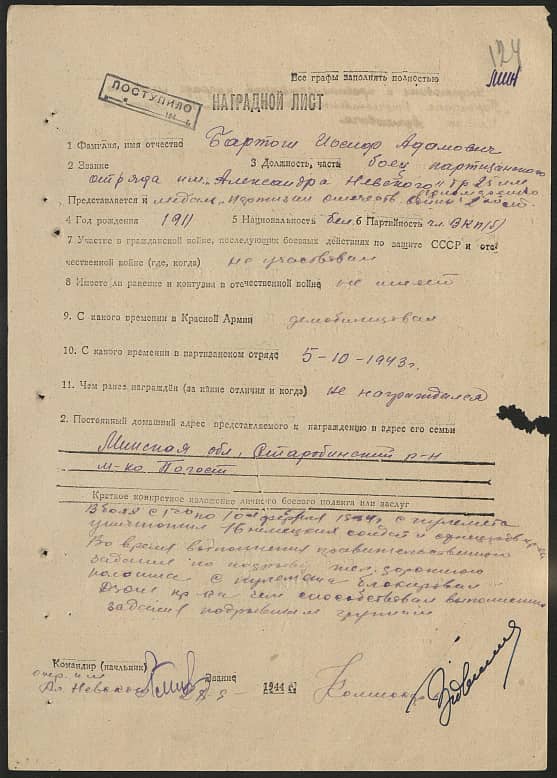 124
Все графы заполнять полностью
МИН
ПОСТУПИЛО
НАГРАДНОЙ ЛИСТ
1 Фамилия, имя отчество Бартош Иосиф Адамович
2 Звание 3 Должность, часть боец партизанского
отряда им. „Александра Невского" бр 25 им.
Представляется к медали „Партизан отечеств. войны" 2 ой ст.
4 Год рождения 1911 5 Национальность бел. 6 Партийность чл. ВКП(б)
7 Участие в гражданской войне, последующих боевых действиях по защите СССР и оте-
чественной войне (где, когда) не участвовал
8 Имеет ли ранение и контузия в отечественной войне не имеет
9. С какого времени в Красной Армии демобилизован
10. С какого времени в партизанском отряде 5-10-1943 г.
11. Чем ранее награждён (за какие отличия и когда) не награждался
2. Постоянный домашний адрес представляемого к награждению и адрес его семьи
Минская обл, Старобинский р-н
м-ко Погост
Краткое конкретное изложение личного боевого подвига или заслуг
В боях с по 10 февраля 1944 г. с пулемета
уничтожил 16 немецких солдат и
Во время выполнения правительственного
задания по подрыву жел. дорожного
полотна с пулемета блокировал
Дзот пр-ка чем способствовал выполнению
задания подрывным группам
Командир (начальник) Звание 1944 г. Комиссар
отр. им
Ал. Невского